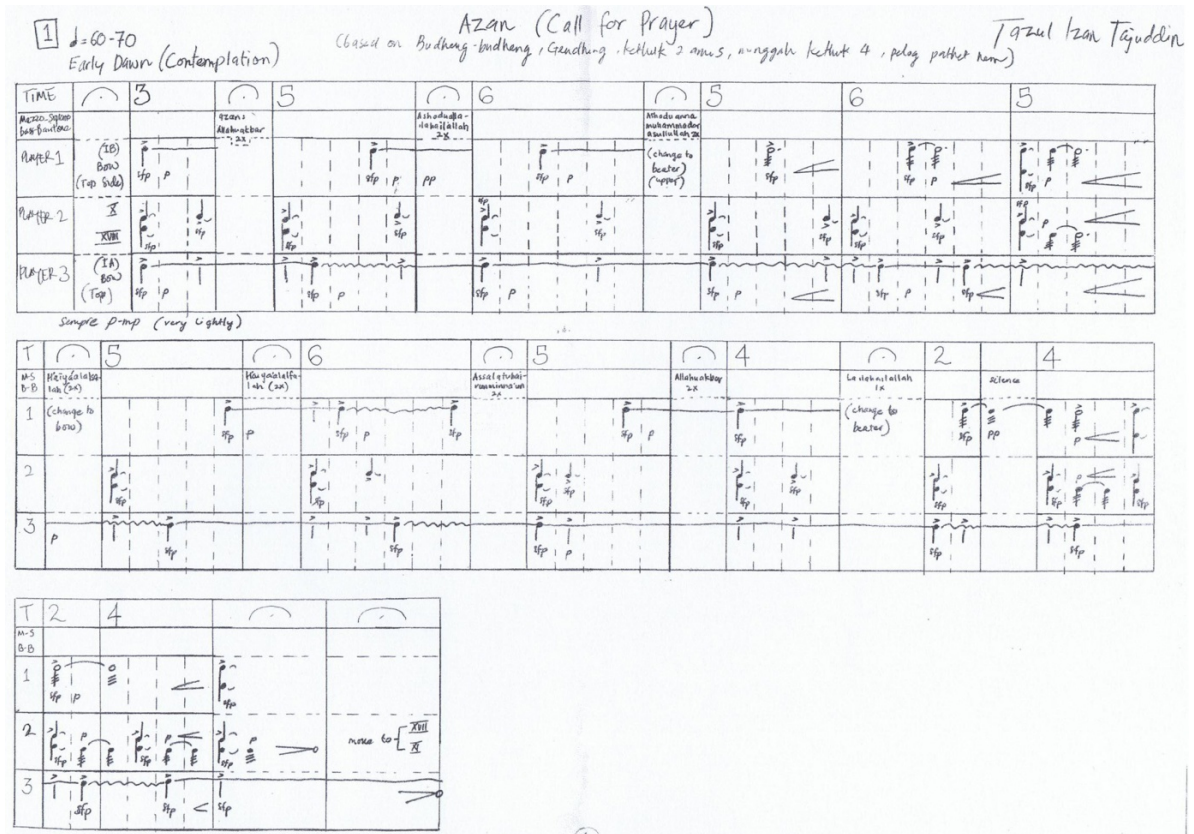 Azan (Call for Prayer)
1 ♩=60-70
Tazul Izan Tajuddin
(based on Budheng-budheng, Gendhing kethuk 2 minggah kethuk 4, pelog pathet nem)
Early Dawn (Contemplation)
TIME 3 5 6 5 6 5
Mezzo-Soprano Bass-Baritone
azan: Allahuakbar 2x
Ashaduallailahailallah 2x
Ashaduanna muhammadarasulullah 2x
PLAYER 1 (IB) Bow (Top Side)
sfp p sfp p pp sfp p (change to beater) (upper) sfp sfp p sfp p
PLAYER 2 X XVIII
sfp sfp sfp sfp sfp sfp sfp sfp sfp sfp sfp p
PLAYER 3 (IA) Bow (Top)
sfp p sfp p sfp p sfp p sfp p sfp
Sempre p-mp (very lightly)
T 5 6 5 4 2 4
M-S B-B
Hayaalalsalah (2x)
Hayaalalfalah (2x)
Assalatukhairunminnaun 2x
Allahuakbar 2x
Lailahailallah 1x
silence
1 (change to bow) sfp p sfp p sfp sfp p sfp (change to beater) sfp pp p
2 sfp sfp sfp sfp sfp sfp sfp sfp p sfp
3 p sfp sfp sfp p sfp sfp
T 2 4
M-S B-B
1 sfp p sfp
2 sfp p sfp p sfp p move to XVII XI
3 sfp sfp sfp